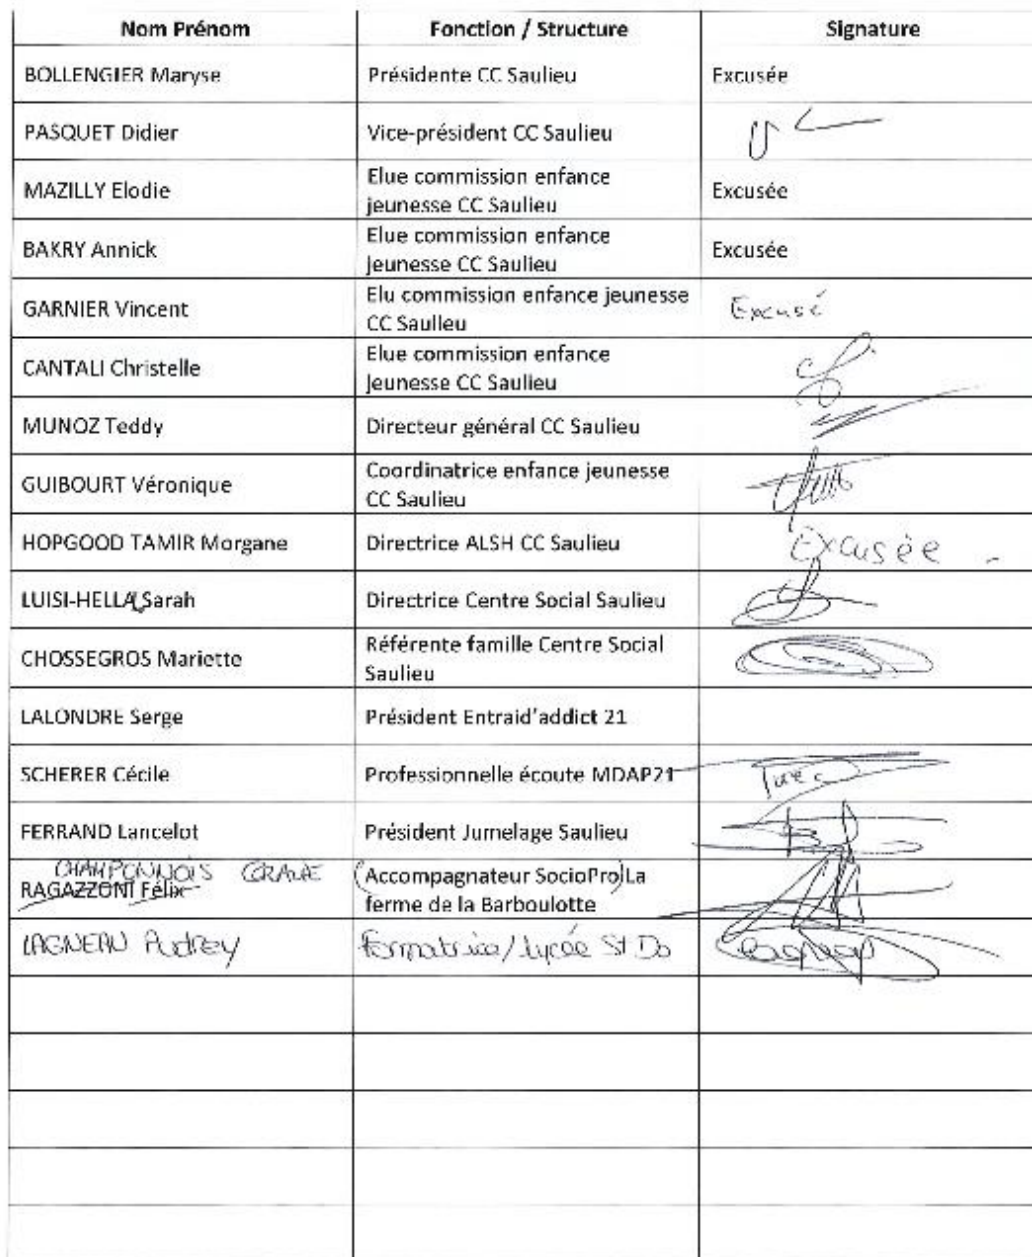 Nom Prénom Fonction / Structure Signature
BOLLENGIER Maryse Présidente CC Saulieu Excusée
PASQUET Didier Vice-président CC Saulieu
MAZILLY Elodie Elue commission enfance
jeunesse CC Saulieu Excusée
BAKRY Annick Elue commission enfance
jeunesse CC Saulieu Excusée
GARNIER Vincent Elu commission enfance jeunesse
CC Saulieu Excusé
CANTALI Christelle Elue commission enfance
jeunesse CC Saulieu
MUNOZ Teddy Directeur général CC Saulieu
GUIBOURT Véronique Coordinatrice enfance jeunesse
CC Saulieu
HOPGOOD TAMIR Morgane Directrice ALSH CC Saulieu Excusée
LUISI-HELLA Sarah Directrice Centre Social Saulieu
CHOSSEGROS Mariette Référente famille Centre Social
Saulieu
LALONDRE Serge Président Entraid'addict 21
SCHERER Cécile Professionnelle écoute MDAP21
FERRAND Lancelot Président Jumelage Saulieu
CHAMPONNOIS
RAGAZZONI Félix (Accompagnateur SocioPro) La
ferme de la Barboulotte
LAGNEAU Audrey Formatrice / Lycée St Do